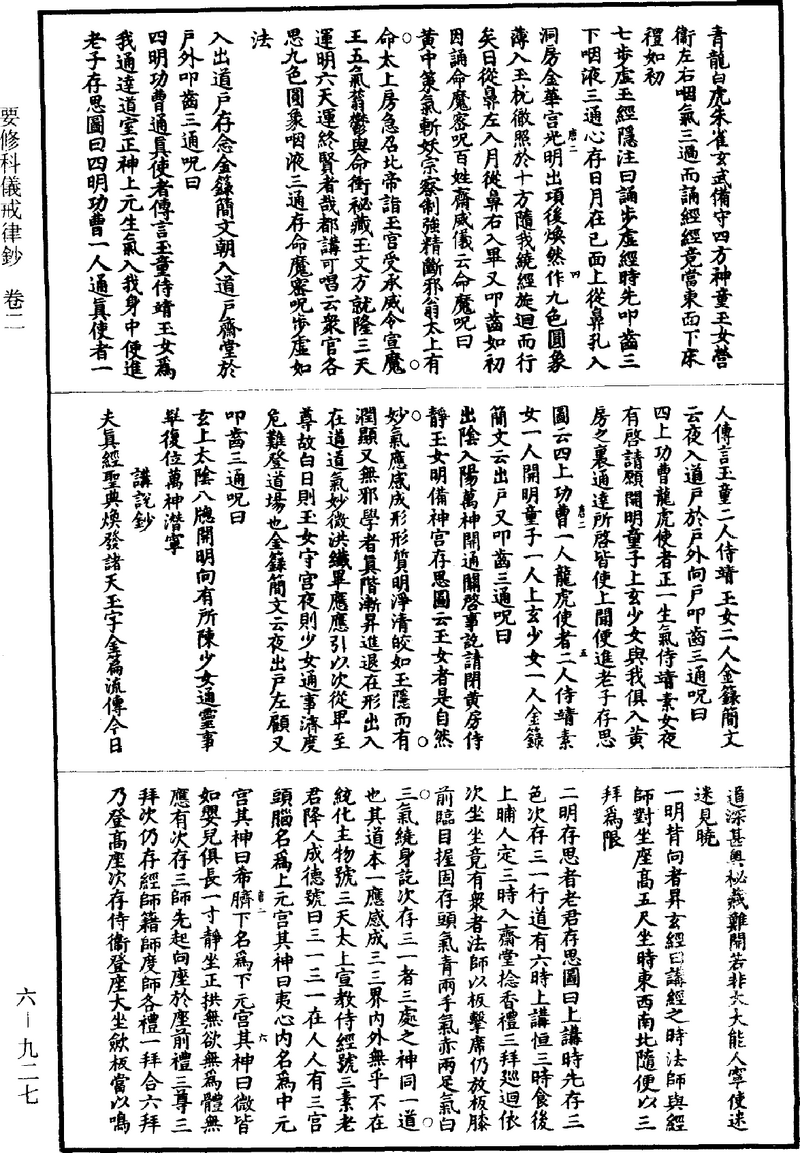 青龍白虎朱雀玄武備守四方神童玉女營
衛左右咽氣三過而誦經經竟當東面下床
禮如初
七步虛玉經隱注曰誦步虛經時先叩齒三
下咽液三過心存日月在己面上從鼻孔入
洞房金華宮光明出項後煥然作九色圓象
薄入玉枕徹照於十方隨我繞經旋迴而行
矣日從鼻左入月從鼻右入畢又叩齒如初
因誦命魔密呪百姓齋威儀云命魔呪曰
黃中策氣斬妖宗察制強精斷邪翁太上有
命太上房急召北帝詣玉宮受承威令宣魔
王五氣翳鬱與命衝秘藏玉文方就隆三天
運明六天運終賢者哉都講可唱云衆官各
思九色圓象咽液三過存命魔密呪步虛如
法
入出道戶存念金籙簡文朝入道戶齋堂於
戶外叩齒三通呪曰
四明功曹通真使者傳言玉童侍靖玉女爲
我通達道室正神上元生氣入我身中便進
老子存思圖曰四明功曹一人通真使者一
人傳言玉童二人侍靖玉女二人金籙簡文
云夜入道戶於戶外向戶叩齒三通呪曰
四上功曹龍虎使者正一生氣侍靖素女夜
有啓請願開明童子上玄少女與我俱入黃
房之裏通達所啓皆使上聞便進老子存思
圖云四上功曹一人龍虎使者二人侍靖素
女一人開明童子一人上玄少女一人金籙
簡文云出戶又叩齒三通呪曰
出陰入陽萬神開通關啓事訖請閉黃房侍
靜玉女明備神宮存思圖云玉女者是自然
妙氣應感成形形質明淨清皎如玉隱而有
潤顯又無邪學者真階漸昇進退在形出入
在道道氣妙微洪纖畢應應引以次從卑至
尊故白日則玉女守宮夜則少女通事濟度
危難登道場也金籙簡文云夜出戶左顧又
叩齒三通呪曰
玄上太陰八牕開明向有所陳少女通靈事
畢復位萬神潛寧
講說鈔
夫真經聖典煥發諸天玉字金篇流傳今日
道深甚奧秘藏難開若非大大能人寧使迷
迷見曉
一明昔向者昇玄經曰講經之時法師與經
師對坐座高五尺坐時東西南北隨便以三
拜爲限
二明存思者老君存思圖曰上講時先存三
色次存三一行道有六時上講恒三時食後
上晡人定三時入齋堂捻香禮三拜巡迴依
次坐坐竟有衆者法師以板擊席仍放板膝
前臨目握固存頭氣青兩手氣赤兩足氣白
三氣繞身訖次存三一者三處之神同一道
也其道本一應感成三三界內外無乎不在
統化主物號三天太上宣教侍經號三素老
君降人成德號曰三一三一在人人有三宮
頭腦名爲上元宮其神曰夷心內名爲中元
宮其神曰希臍下名爲下元宮其神曰微皆
如嬰兒俱長一寸靜坐正拱無欲無爲體無
應有次存三師先起向座於座前禮三尊三
拜次仍存經師籍師度師各禮一拜合六拜
乃登高座次存侍衛登座大坐斂板當以鳴
要修科儀戒律鈔　卷二
六—九二七